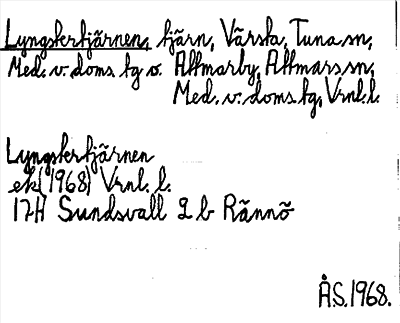 Lyngstertjärnen, tjärn, Värsta, Tuna sn,
Med. v. doms. tg o. Attmarby, Attmars sn,
Med. v. doms. tg, Vrnl. l.
Lyngstertjärnen
ek (1968) Vrnl. l.
17H Sundsvall 2 b Rännö
Å.S. 1968.